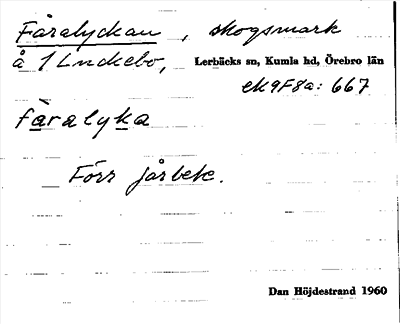 Fåralyckan, skogsmark
å 1 Lnckebo, Lerbäcks sn, Kumla hd, Örebro län
ek 9F8a: 667
fåralyka
Förr fårbete.
Dan Höjdestrand 1960